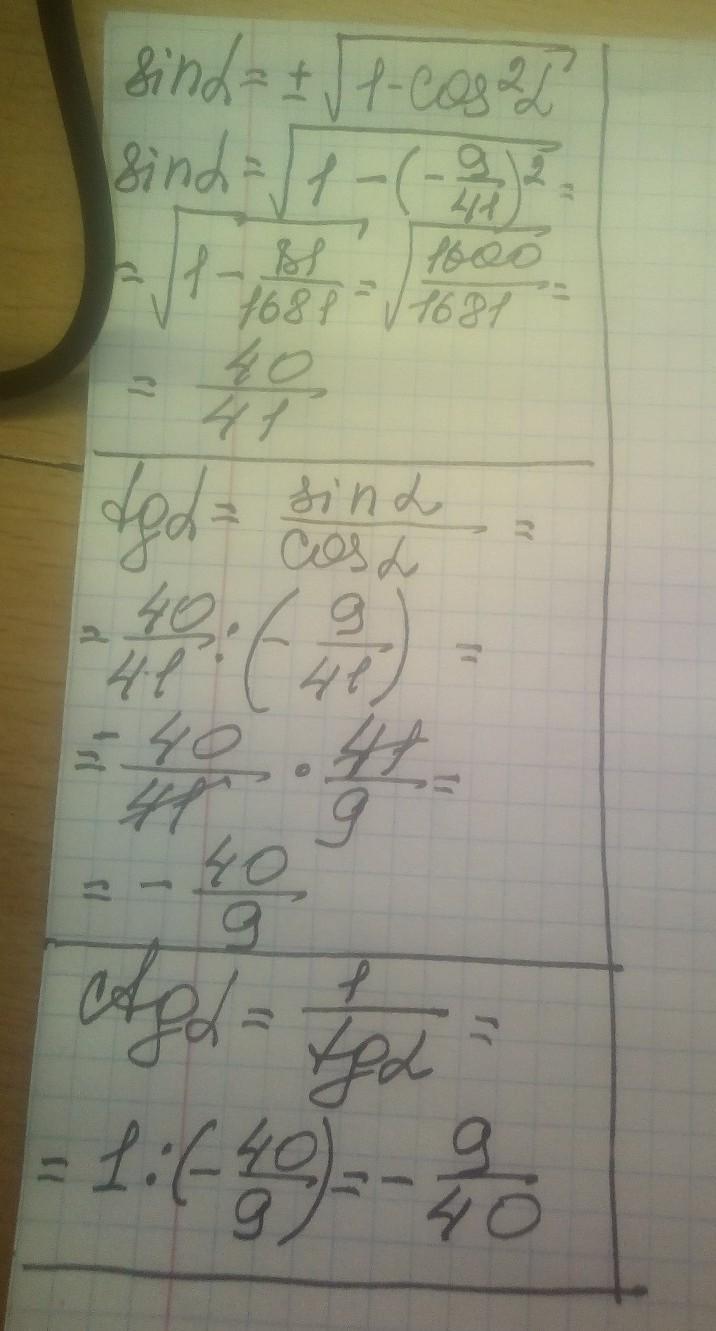 sinα = ± √(1 - cos²α)
sinα = √(1 - (- 9/41)²) =
= √(1 - 81/1681) = √(1600/1681) =
= 40/41
tgα = sinα/cosα =
= 40/41 : (- 9/41) =
= - 40/41 · 41/9 =
= - 40/9
ctgα = 1/tgα =
= 1 : (- 40/9) = - 9/40